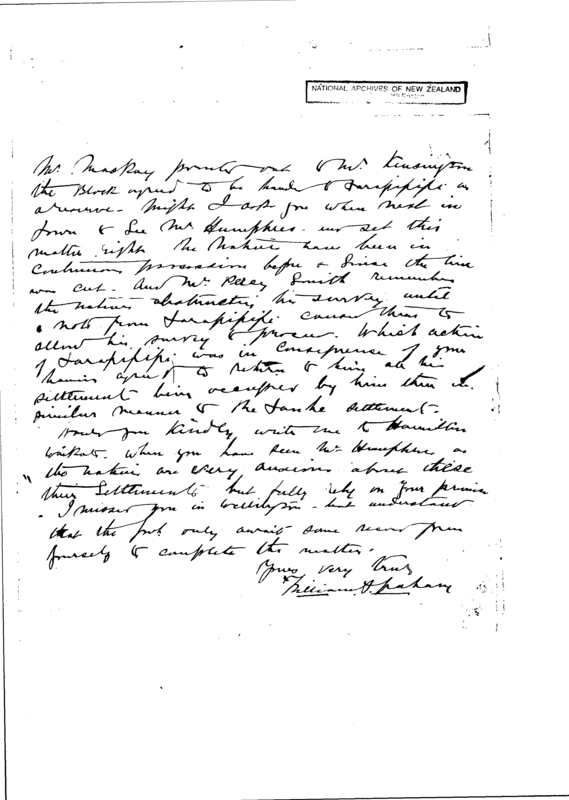 NATIONAL ARCHIVES OF NEW ZEALAND
Mr. Mackay pointed out to Mr. Kensington
the Block agreed to be handed to Tarapipipi as
a reserve. Might I ask you when next in
Town to See Mr Humphries and set this
matter right. The Natives have been in
Continuous possession before & Since the line
was cut. And Mr. Percy Smith remembers
the natives obstructing his survey until
a note from Tarapipipi caused them to
allow his survey to proceed. Which action
of Tarapipipi was in Consequence of your
having agreed to return to him all his
settlement being occupied by him then in
similar manner to the settlement.
Would you kindly write me to Hamilton
Waikato. when you have seen Mr Humphries as
the natives are very anxious about these
their Settlements but fully rely on your promise
I missed you in Wellington but understand
that the only await some from
yourself to complete the matter.
Yours very truly
William A. Graham